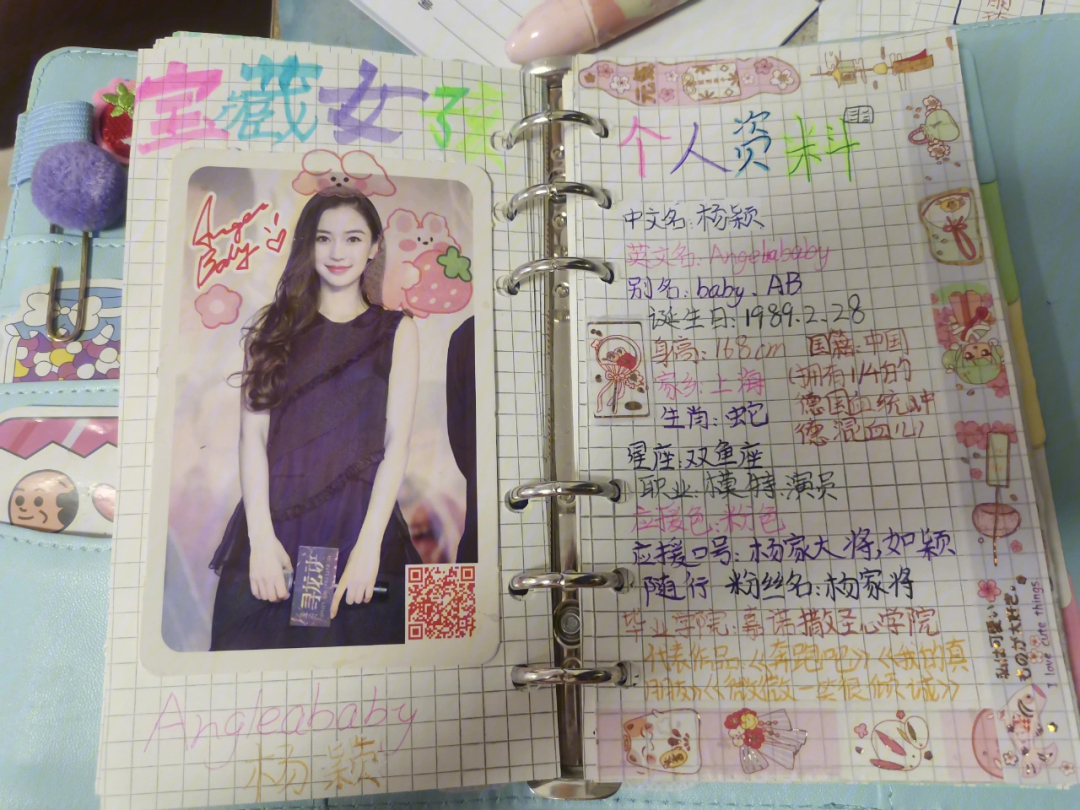 宝藏女孩
Angela
Baby
寻龙诀
Angleababy
杨颖
个人资料
中文名:杨颖
英文名:Angelababy
别名:baby、AB
诞生日:1989.2.28
身高:168cm
国籍:中国
(拥有1/4的
德国血统,中
德混血儿)
家乡:上海
生肖:蛇
星座:双鱼座
职业:模特.演员
应援色:粉色
应援口号:杨家大将,如颖
随行 粉丝名:杨家将
毕业学院:嘉诺撒圣心学院
代表作品:《奔跑吧》《我的真
朋友》《微微一笑很倾城》
I love cute things